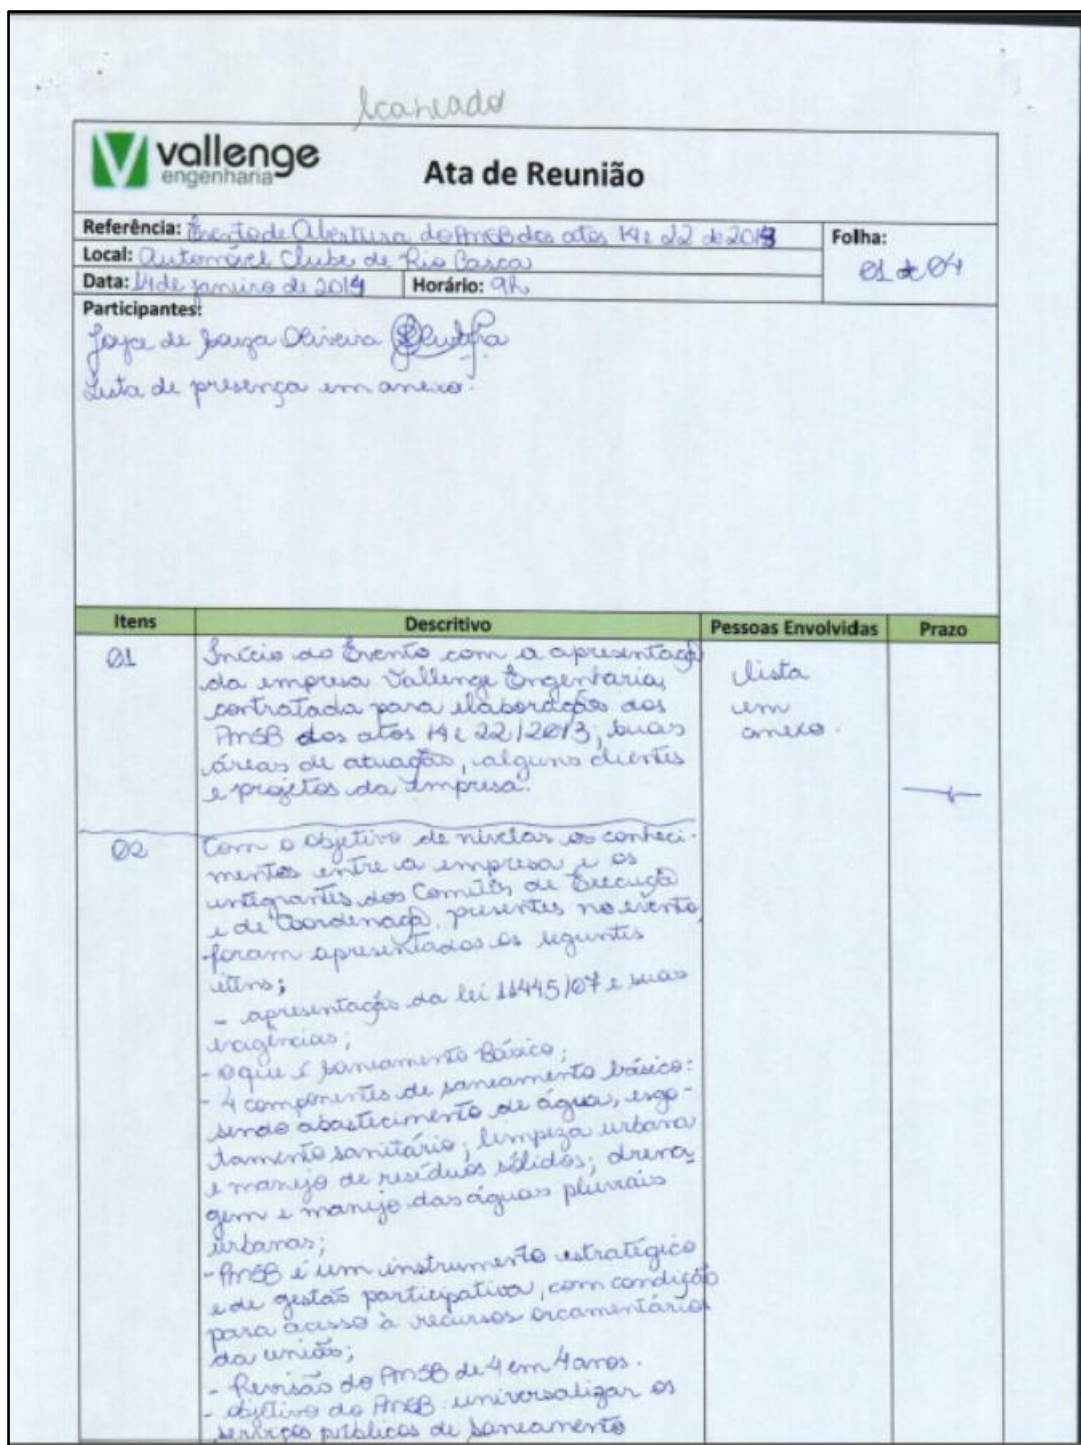 Scaneado
vallenge
engenharia
Ata de Reunião
Referência: Evento de Abertura do PMSB dos atos 14 e 22 de 2013
Folha:
01 de 04
Local: Automóvel Clube de Rio Casca
Data: 14 de janeiro de 2014 Horário: 9h
Participantes:
Joyce de Souza Oliveira
Lista de presença em anexo.
Itens Descritivo Pessoas Envolvidas Prazo
01 Início do Evento com a apresentaçã
da empresa Vallenge Engenharia,
contratada para elaboração dos
PMSB dos atos 14 e 22/2013; suas
áreas de atuação, alguns clientes
e projetos da empresa.
lista
em
anexo.
02 Com o objetivo de nivelar os conheci-
mentos entre a empresa e os
integrantes dos Comitês de Execuçã
e de Coordenaçã, presentes no evento,
foram apresentados os seguintes
itens;
- apresentação da lei 11445/07 e suas
exigências;
- o que é saneamento Básico;
- 4 componentes de saneamento básico:
sendo abastecimento de água, esgo-
tamento sanitário; limpeza urbana
e manejo de resíduos sólidos; drena-
gem e manejo das águas pluviais
urbanas;
- PMSB é um instrumento estratégico
e de gestão participativa, com condição
para acesso à recursos orcamentários
da união;
- Revisão do PMSB de 4 em 4 anos.
- objetivo do PMSB: universalizar os
serviços públicos de saneamento